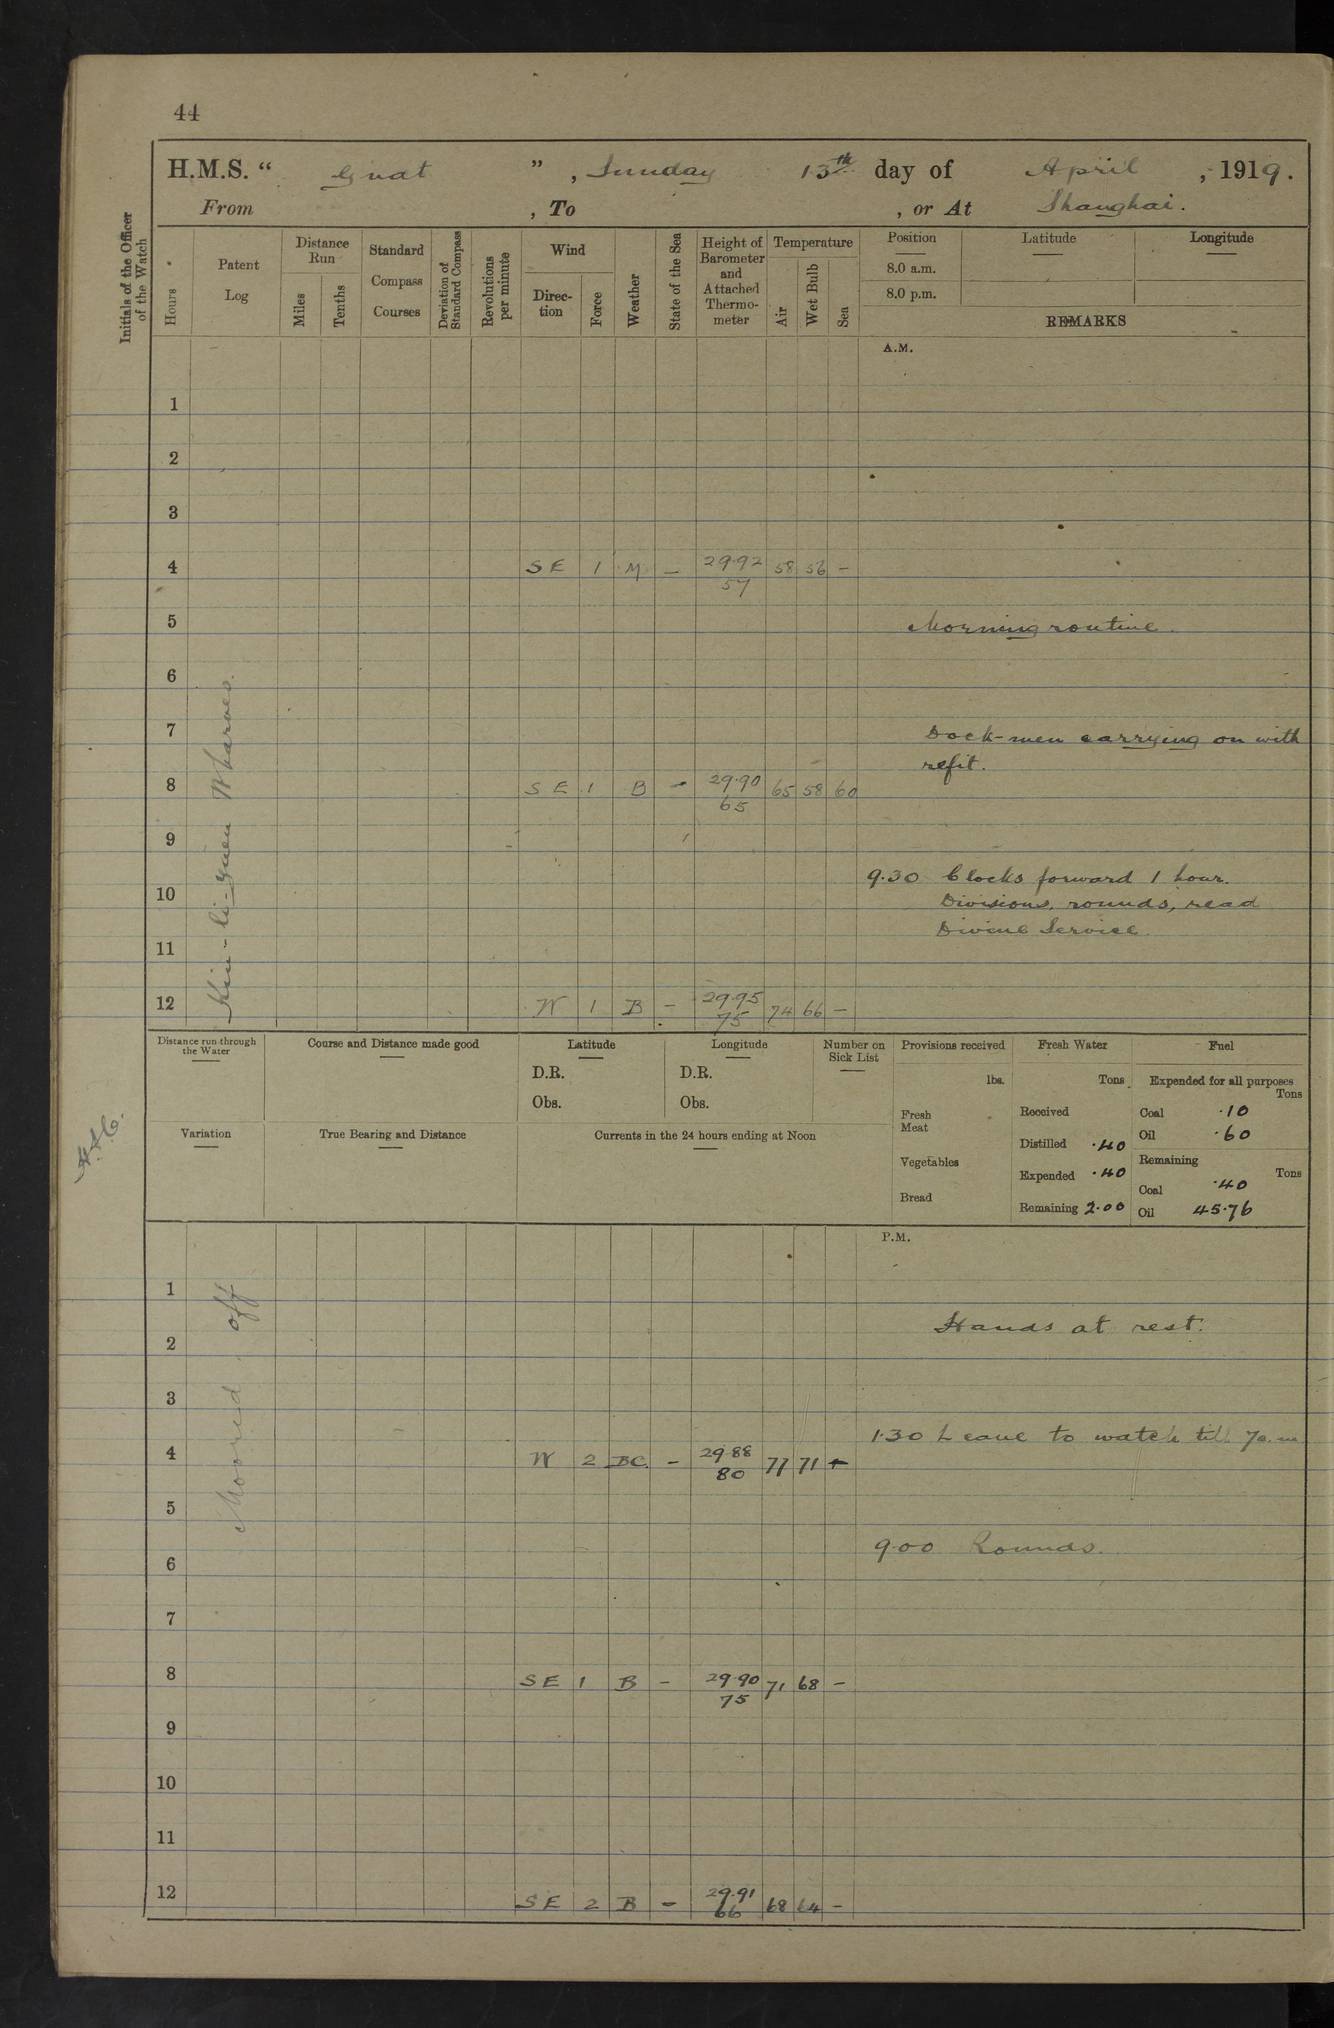 44
H.M.S. “ Gnat ” , Sunday 13th day of April , 1919.
From , To , or At Shanghai.
Initials of the Officer of the Watch
Hours
Patent Log
Distance Run
Miles
Tenths
Standard Compass Courses
Deviation of Standard Compass
Revolutions per minute
Wind
Direc-tion
Force
Weather
State of the Sea
Height of Barometer and Attached Thermo-meter
Temperature
Air
Wet Bulb
Sea
Position Latitude Longitude
8.0 a.m.
8.0 p.m.
REMARKS
A.M.
1
2
3
4 SE 1 M - 29.92 58 56 -
57
5 Morning routine.
6
7 Dock-men carrying on with
refit.
8 SE 1 B - 29.90 65 58 60
65
9
9.30 Clocks forward 1 hour.
10 Divisions, rounds, read
Divine Service.
11
12 W 1 B - 29.95 74 66 -
75
Kin-li-yuen Wharves.
Distance run through the Water
Course and Distance made good
Latitude
D.R.
Obs.
Longitude
D.R.
Obs.
Number on Sick List
Variation
True Bearing and Distance
Currents in the 24 hours ending at Noon
Provisions received
lbs.
Fresh Meat
Vegetables
Bread
Fresh Water
Tons
Received
Distilled .40
Expended .40
Remaining 2.00
Fuel
Expended for all purposes
Tons
Coal .10
Oil .60
Remaining
Tons
Coal .40
Oil 45.76
P.M.
1
Hands at rest.
2
3
1.30 Leave to watch till 7a.m
4 W 2 BC. - 29.88 77 71 -
80
5
9.00 Rounds.
6
7
8 SE 1 B - 29.90 71 68 -
75
9
10
11
12 SE 2 B - 29.91 68 64 -
66
Moored off